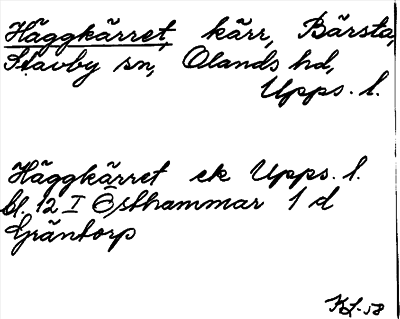 Häggkärret, kärr, Bärsta,
Skävby sn, Olands hd,
Upps. l.
Häggkärret ek Upps. l.
bl. 12 I Östhammar 1 d
Gräntorp
KL-58